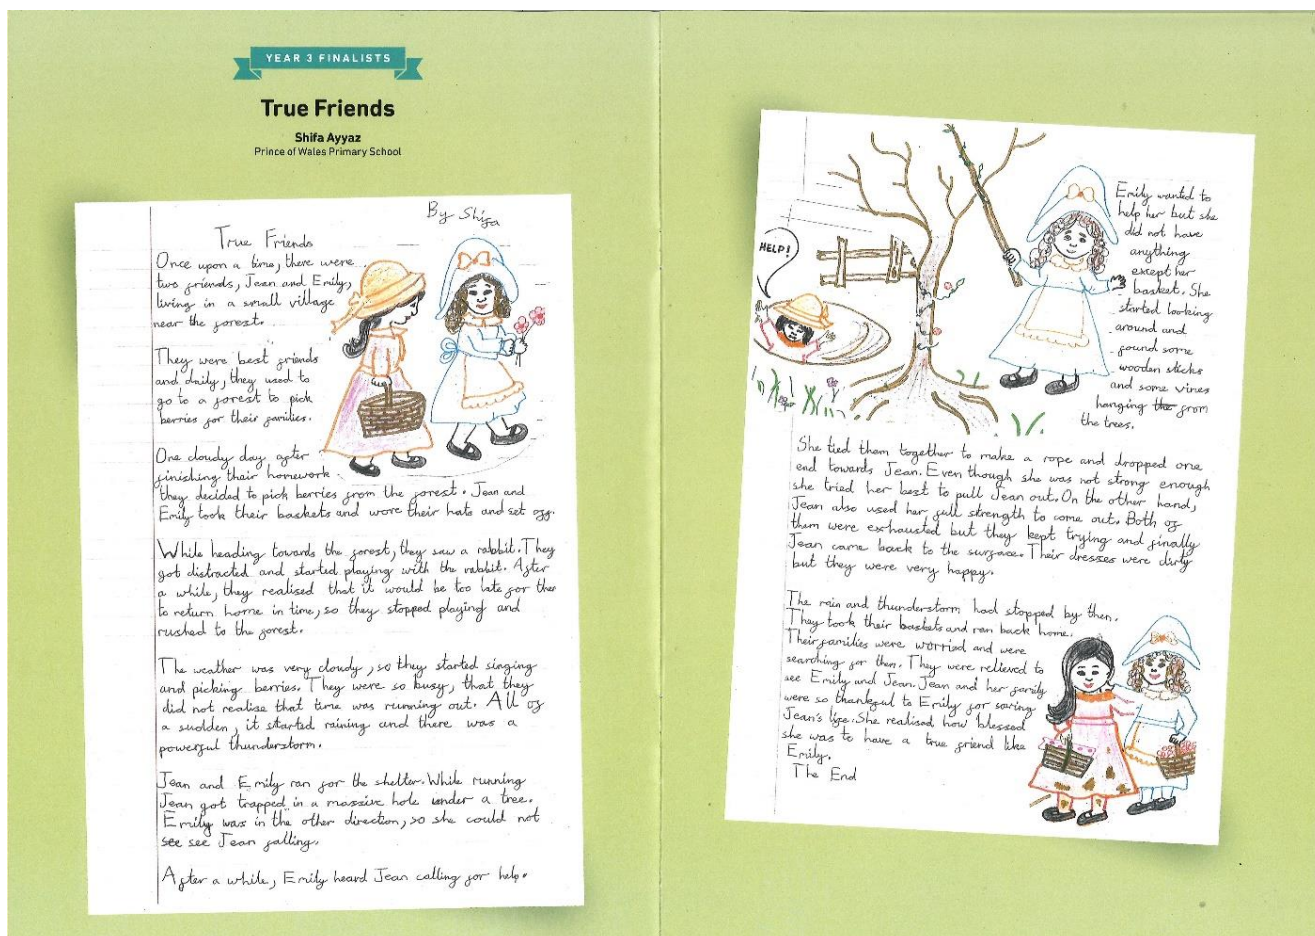 YEAR 3 FINALISTS
True Friends
Shifa Ayyaz
Prince of Wales Primary School
By Shifa
True Friends
Once upon a time, there were
two friends, Jean and Emily,
living in a small village
near the forest.
They were best friends
and daily, they used to
go to a forest to pick
berries for their families.
One cloudy day after
finishing their homework
they decided to pick berries from the forest. Jean and
Emily took their baskets and wore their hats and set off.
While heading towards the forest, they saw a rabbit. They
got distracted and started playing with the rabbit. After
a while, they realised that it would be too late for them
to return home in time, so they stopped playing and
rushed to the forest.
The weather was very cloudy, so they started singing
and picking berries. They were so busy, that they
did not realise that time was running out. All of
a sudden, it started raining and there was a
powerful thunderstorm.
Jean and Emily ran for the shelter. While running
Jean got trapped in a massive hole under a tree.
Emily was in the other direction, so she could not
see see Jean falling.
After a while, Emily heard Jean calling for help.
HELP!
Emily wanted to
help her but she
did not have
anything
except her
basket. She
started looking
around and
found some
wooden sticks
and some vines
hanging the from
the trees.
She tied them together to make a rope and dropped one
end towards Jean. Even though she was not strong enough
she tried her best to pull Jean out. On the other hand,
Jean also used her full strength to come out. Both of
them were exhausted but they kept trying and finally
Jean came back to the surface. Their dresses were dirty
but they were very happy.
The rain and thunderstorm had stopped by then.
They took their baskets and ran back home.
Their families were worried and were
searching for them. They were relieved to
see Emily and Jean. Jean and her family
were so thankful to Emily for saving
Jean's life. She realised how blessed
she was to have a true friend like
Emily.
The End